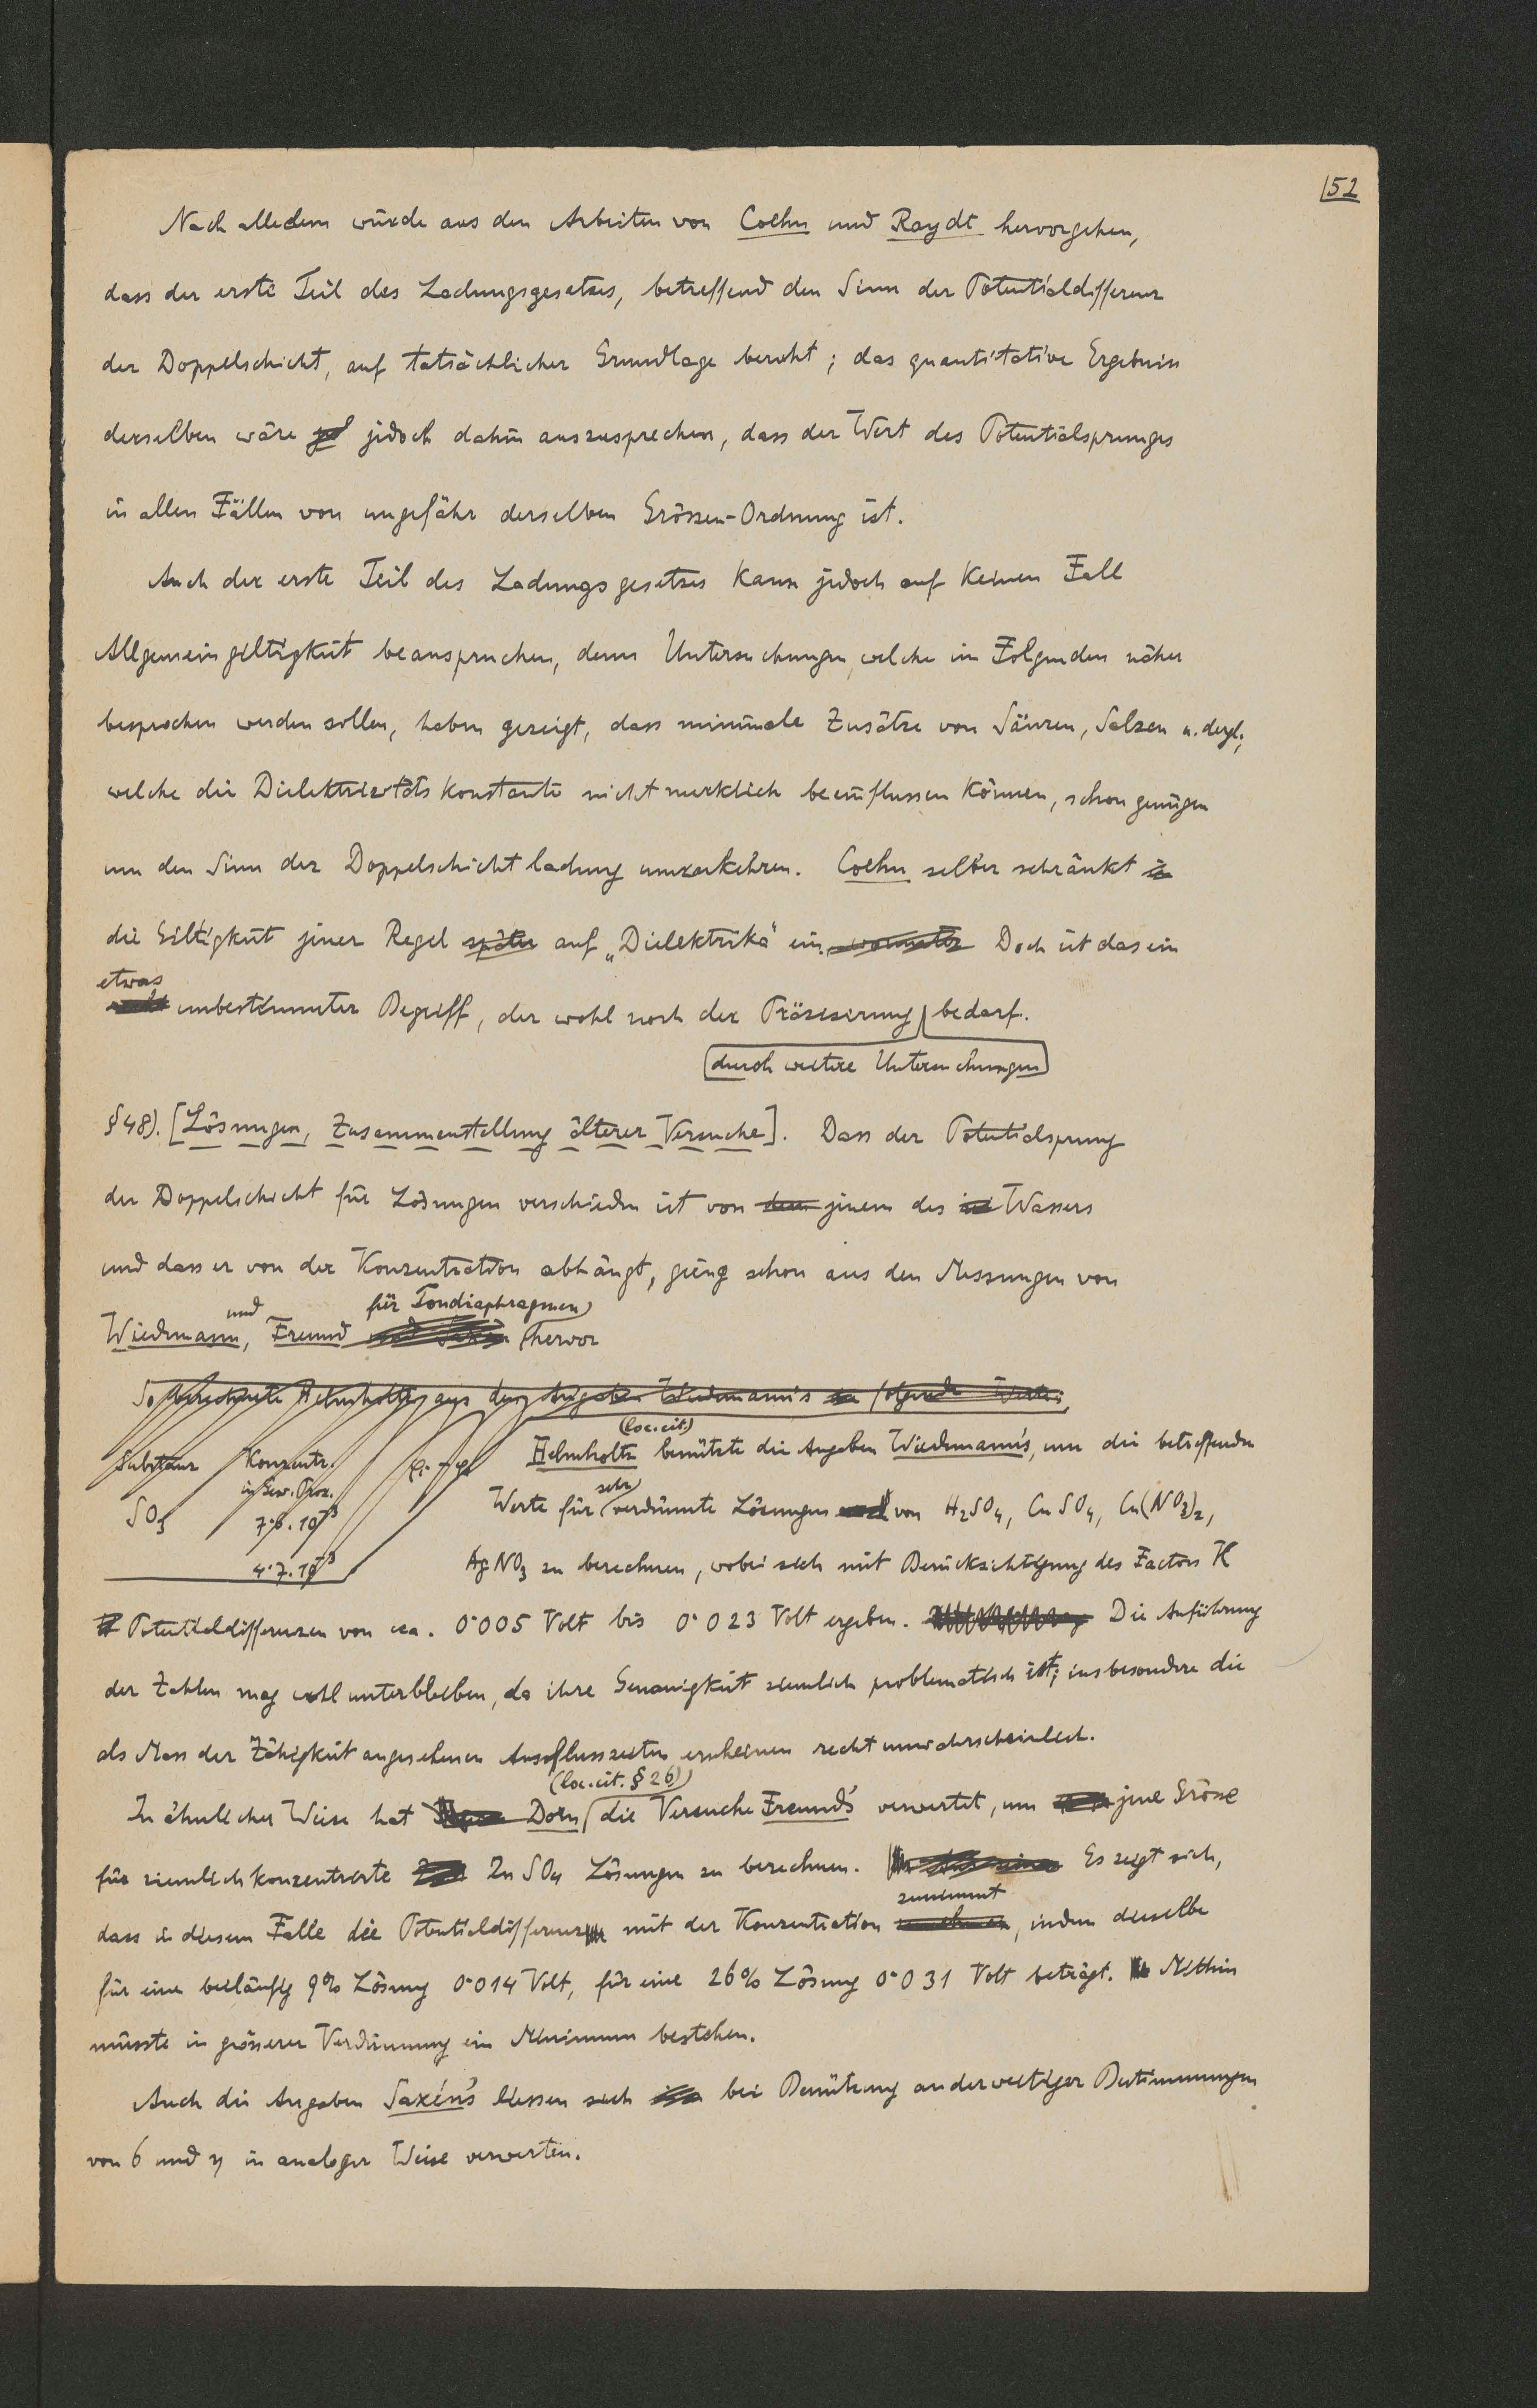 52
Nach alledem würde aus den Arbeiten von Coehn und Raydt hervorgehen,
dass der erste Teil des Ladungsgesetzes, betreffend den Sinn der Potentialdifferenz
der Doppelschicht, auf tatsächlicher Grundlage beruht; das quantitative Ergebnis
derselben wäre jedoch dahin auszusprechen, dass der Wert des Potentialsprunges
in allen Fällen von ungefähr derselben Grössen-Ordnung ist.
Auch der erste Teil des Ladungsgesetzes kann jedoch auf keinen Fall
Allgemeingiltigkeit beanspruchen, denn Untersuchungen, welche im Folgenden näher
besprochen werden sollen, haben gezeigt, dass minimale Zusätze von Säuren, Salzen u. dergl.,
welche die Dielektrizitätskonstante nicht merklich beeinflussen können, schon genügen
um den Sinn der Doppelschichtladung umzukehren. Coehn selber schränkt
die Giltigkeit jener Regel später auf „Dielektrika" ein. Doch ist das ein
etwas
unbestimmter Begriff, der wohl noch der Präzisierung bedarf.
durch weitere Untersuchungen
§48). [Lösungen, Zusammenstellung älterer Versuche]. Dass der Potentialsprung
der Doppelschicht für Lösungen verschieden ist von dem jenem des Wassers
und dass er von der Konzentration abhängt, gieng schon aus den Messungen von
und für Tondiaphragmen
Wiedmann, Freund und Saxén hervor
So berechnete Helmholtz aus den Angaben Wiedmann's folgende Werte:
(loc. cit.)
Substanz Konzentr. φi-φa Helmholtz benützte die Angaben Wiedmann's, um die betreffenden
in Gew. Proz.
sehr
SO3 7·6.10^-3 Werte für verdünnte Lösungen von H2SO4, CuSO4, Cu(NO3)2,
4·7.10^-3 AgNO3 zu berechnen, wobei sich mit Berücksichtigung des Factors K
Potentialdifferenzen von ca. 0·005 Volt bis 0·023 Volt ergeben. Die Anführung
der Zahlen mag wohl unterbleiben, da ihre Genauigkeit ziemlich problematisch ist; insbesondere die
als Mass der Zähigkeit angesehenen Ausflusszeiten erscheinen recht unwahrscheinlich.
(loc. cit. §26)
In ähnlicher Weise hat Dorn die Versuche Freund's verwertet, um jene Grösse
für ziemlich konzentrierte ZnSO4 Lösungen zu berechnen. Es zeigt sich,
zunimmt
dass in diesem Falle die Potentialdifferenz mit der Konzentration, indem dieselbe
für eine beiläufig 9% Lösung 0·014 Volt, für eine 26% Lösung 0·031 Volt beträgt. Mithin
müsste in grösserer Verdünnung ein Minimum bestehen.
Auch die Angaben Saxén's liessen sich bei Benützung anderweitiger Bestimmungen
von σ und η in analoger Weise verwerten.